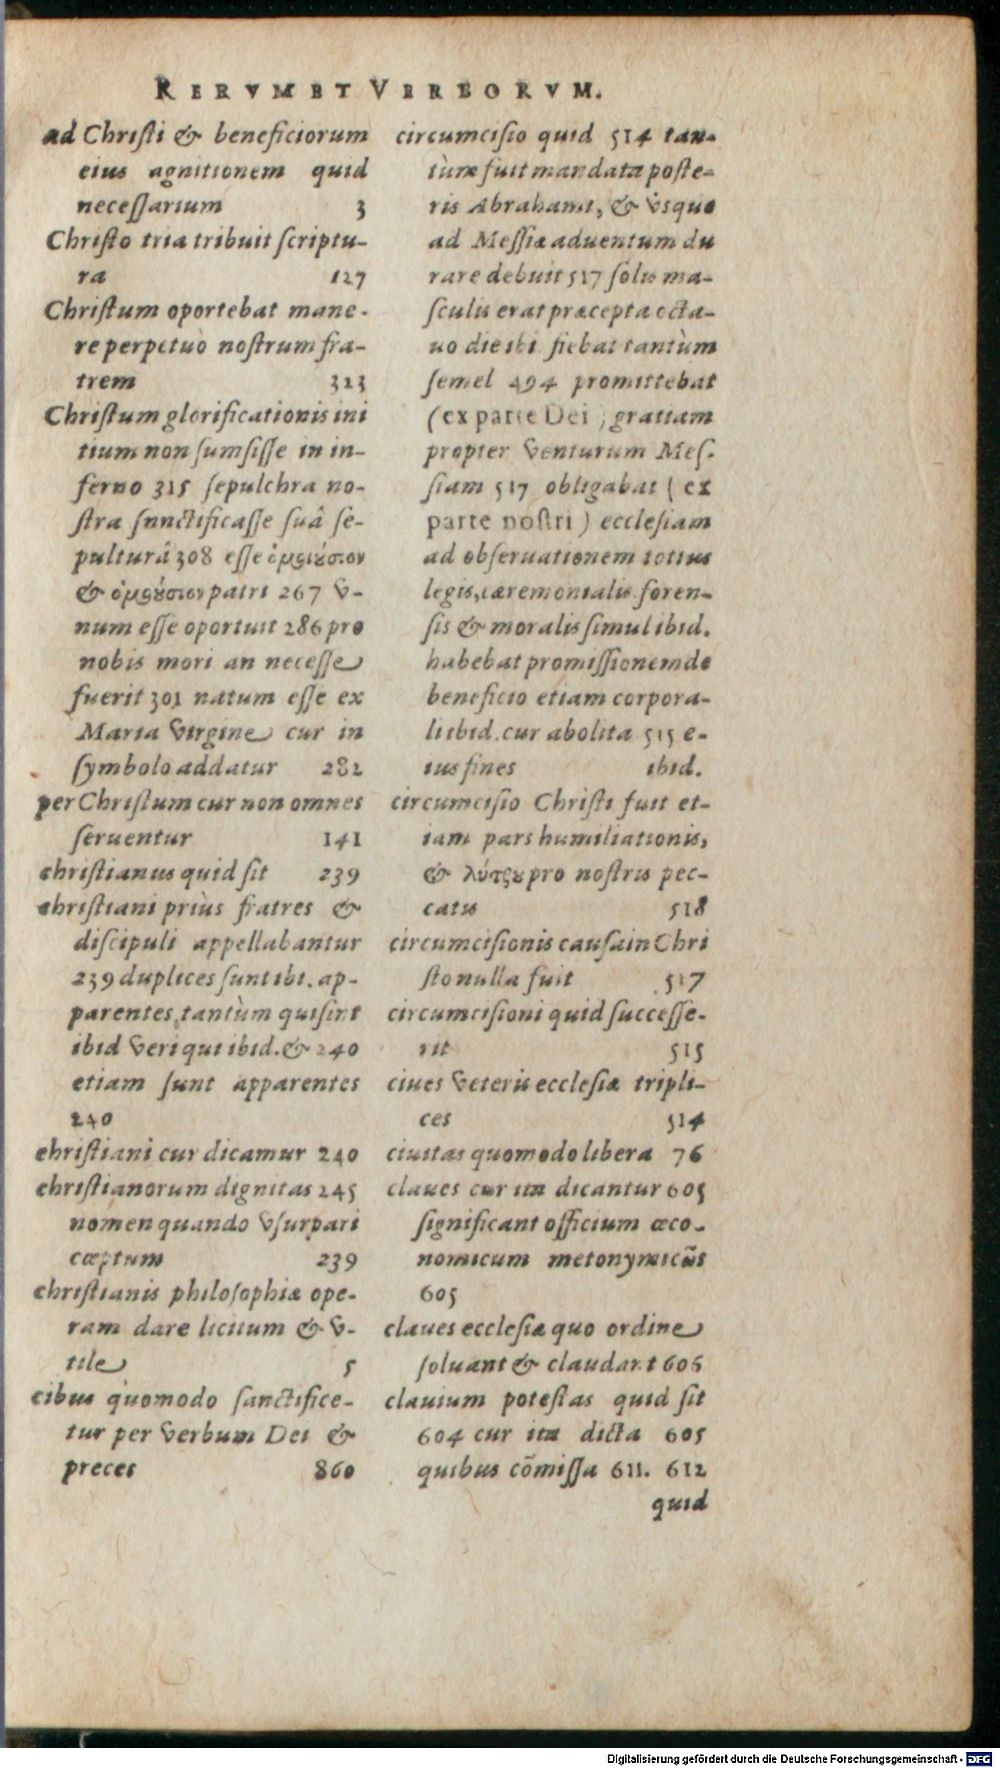 RERVM ET VERBORVM.
ad Christi & beneficiorum
eius agnitionem quid
necessarium 3
Christo tria tribuit scriptu-
ra 127
Christum oportebat mane-
re perpetuò nostrum fra-
trem 323
Christum glorificationis ini
tium non sumsisse in in-
ferno 315 sepulchra no-
stra snnctificasse suâ se-
pulturâ 308 esse ὁμοιούσιον
& ὁμοούσιον patri 267 v-
num esse oportuit 286 pro
nobis mori an necesse
fuerit 301 natum esse ex
Maria virgine cur in
symbolo addatur 282
per Christum cur non omnes
seruentur 141
christianus quid sit 239
christiani priùs fratres &
discipuli appellabantur
239 duplices sunt ibi. ap-
parentes, tantùm qui sint
ibid veri qui ibid. & 240
etiam sunt apparentes
240
christiani cur dicamur 240
christianorum dignitas 245
nomen quando vsurpari
cœptum 239
christianis philosophiæ ope-
ram dare licitum & v-
tile 5
cibus quomodo sanctifice-
tur per verbum Dei &
preces 860
circumcisio quid 514 tan-
tùm fuit mandata poste-
ris Abrahami, & vsque
ad Messiæ aduentum du
rare debuit 517 solis ma-
sculis erat præcepta octa-
uo die ibi. fiebat tantùm
semel 494 promittebat
(ex parte Dei) gratiam
propter venturum Mes-
siam 517 obligabat (ex
parte nostri) ecclesiam
ad obseruationem totius
legis, cæremonialis foren-
sis & moralis simul ibid.
habebat promissionem de
beneficio etiam corpora-
li ibid. cur abolita 515 e-
ius fines ibid.
circumcisio Christi fuit et-
iam pars humiliationis,
& λύτρου pro nostris pec-
catis 518
circumcisionis causa in Chri
sto nulla fuit 517
circumcisioni quid successe-
rit 515
ciues veteris ecclesiæ tripli-
ces 514
ciuitas quomodo libera 76
claues cur ita dicantur 605
significant officium œco-
nomicum metonymicῶs
605
claues ecclesiæ quo ordine
soluant & claudant 606
clauium potestas quid sit
604 cur ita dicta 605
quibus cõmissa 611. 612
quid
Digitalisierung gefördert durch die Deutsche Forschungsgemeinschaft - DFG